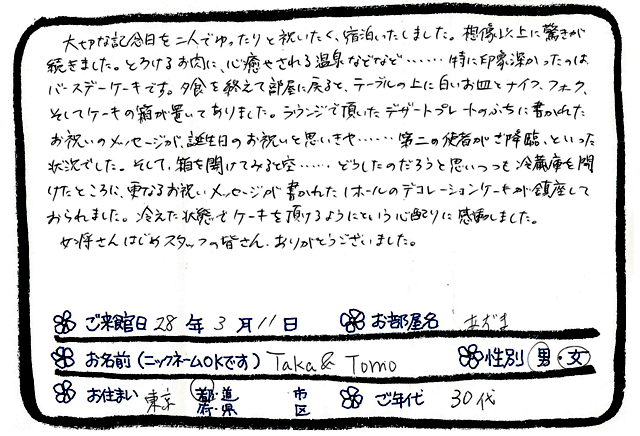 大切な記念日を二人でゆったりと祝いたく、宿泊いたしました。想像以上に驚きが
続きました。とろけるお肉に、心癒やされる温泉などなど……特に印象深かったのは
バースデーケーキです。夕食を終えて部屋に戻ると、テーブルの上に白いお皿とナイフ、フォーク、
そしてケーキの箱が置いてありました。ラウンジで頂いたデザートプレートのふちに書かれた
お祝いのメッセージが、誕生日のお祝いと思いきや……第二の使者がご降臨、といった
状況でした。そして、箱を開けてみると空……どうしたのだろうと思いつつも冷蔵庫を開
けたところに、更なるお祝いメッセージが書かれた1ホールのデコレーションケーキが鎮座して
おられました。冷えた状態でケーキを頂けるようにという心配りに感動しました。
女将さんはじめスタッフの皆さん、ありがとうございました。
ご来館日 28 年 3 月 11 日 お部屋名 あずま
お名前(ニックネームOKです) Taka & Tomo 性別 男・女
お住まい 東京 都・道 府・県 市 区 ご年代 30代